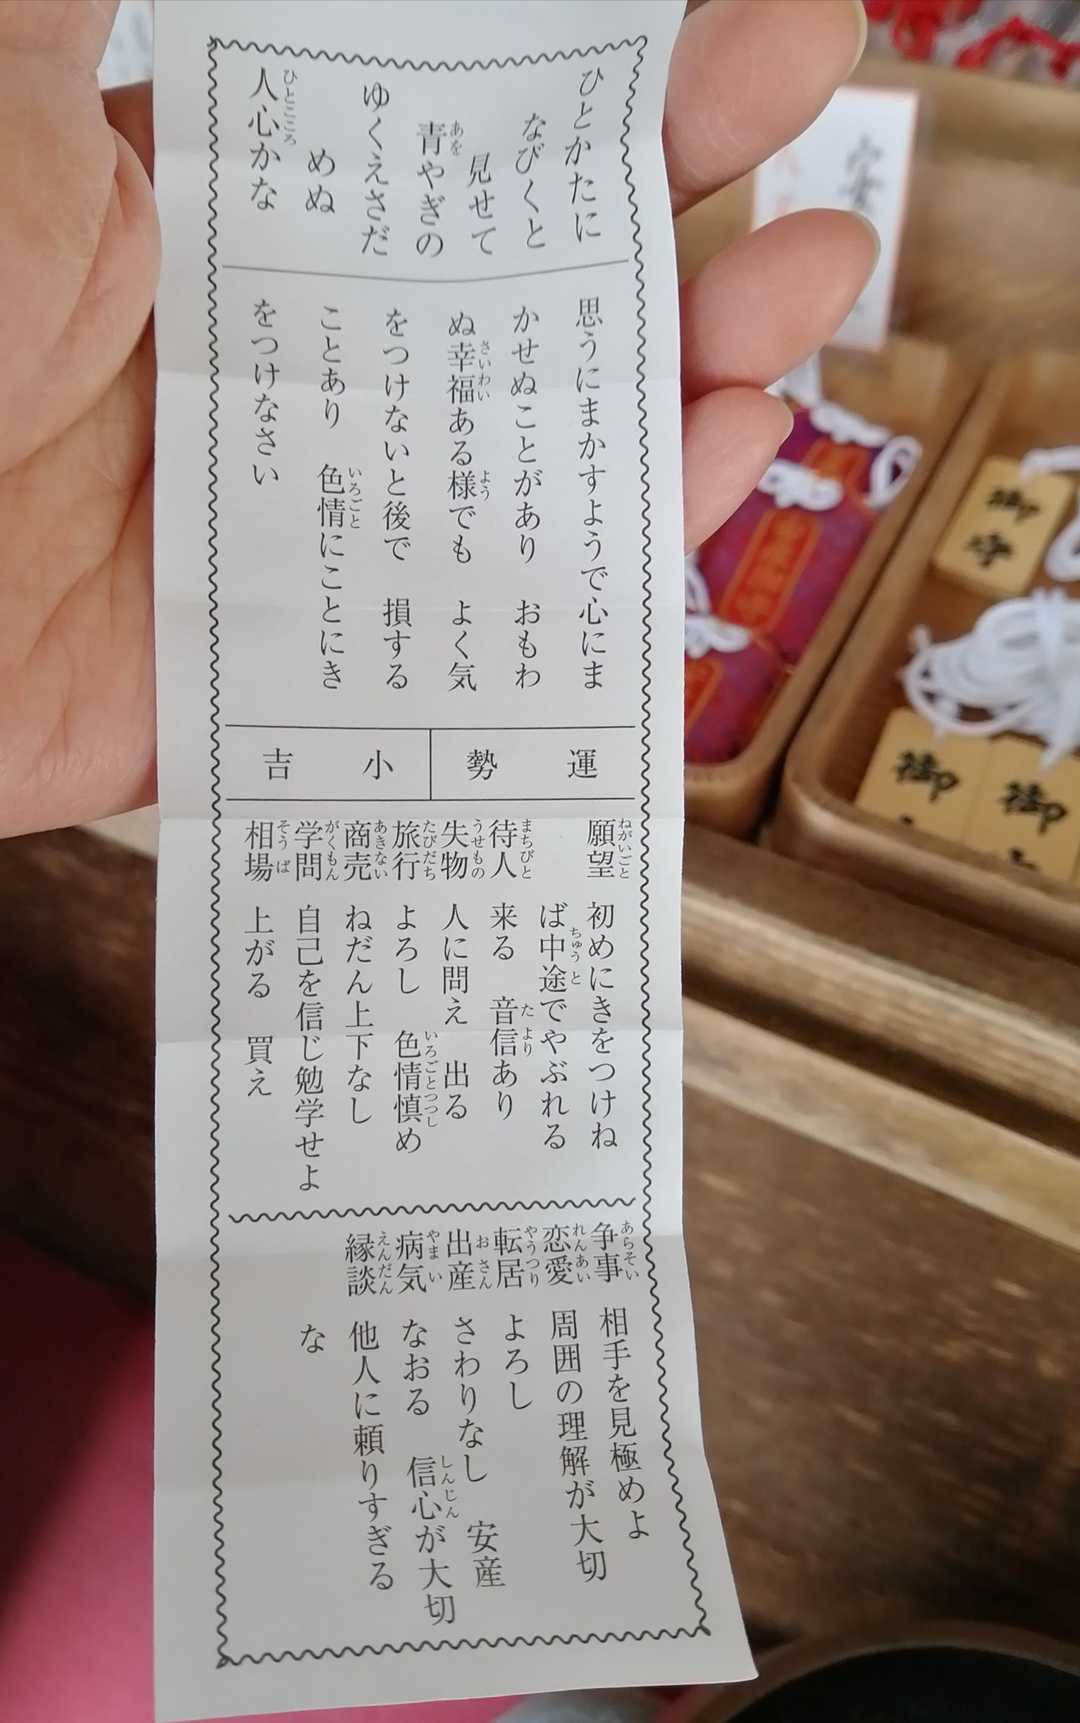 ひとかたに
なびくと
見せて
青やぎの
ゆくえさだ
めぬ
人心かな
思うにまかすようで心にま
かせぬことがあり おもわ
ぬ幸福ある様でも よく気
をつけないと後で 損する
ことあり 色情にことにき
をつけなさい
運勢 小吉
願望 初めにきをつけね
ば中途でやぶれる
待人 来る 音信あり
失物 人に問え 出る
旅行 よろし 色情慎め
商売 ねだん上下なし
学問 自己を信じ勉学せよ
相場 上がる 買え
争事 相手を見極めよ
恋愛 周囲の理解が大切
転居 よろし
出産 さわりなし 安産
病気 なおる 信心が大切
縁談 他人に頼りすぎる
な
御守
御
御